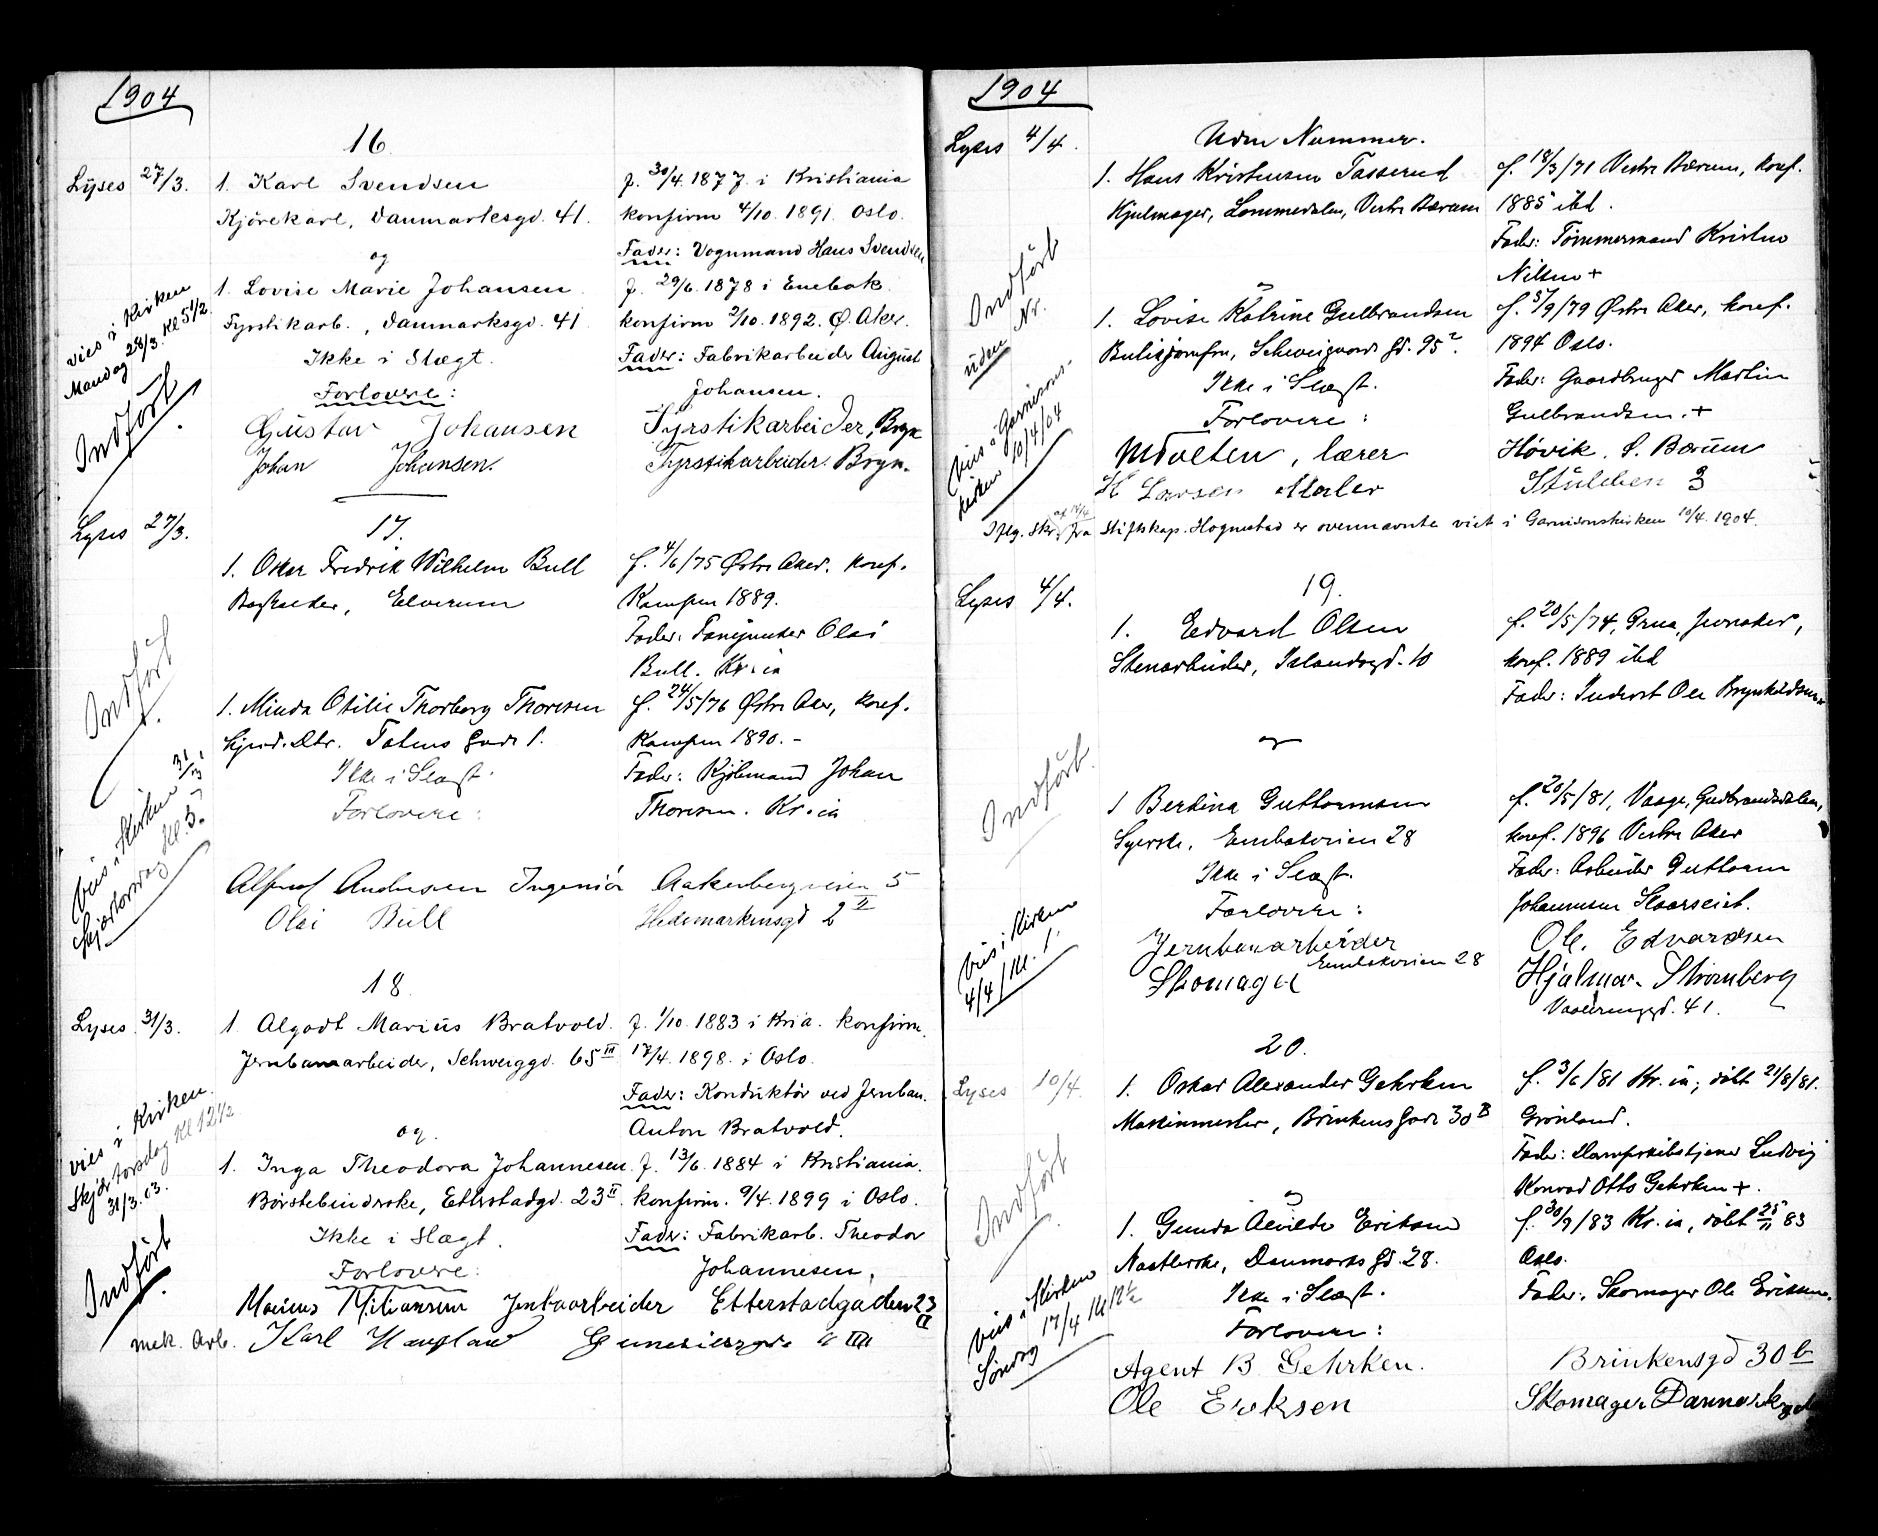 1904
16
Lyses 27/3.
1. Karl Svendsen
Kjörekarl, Danmarksgd. 41.
og
1. Lovise Marie Johansen
Fyrstikarb., Danmarksgd. 41
Ikke i Slægt.
Forlovere:
Gustav Johansen
Johan Johansen.
f. 30/4. 1877. i Kristiania
konfirm 4/10. 1891. Oslo.
Fader: Vognmand Hans Svendsen
f. 29/6. 1878 i Enebak.
konfirm 2/10. 1892. Ø. Aker.
Fader: Fabrikarbeider August
Johansen.
Fyrstikarbeider, Bryn
Fyrstikarbeider. Bryn.
vies i Kirken
Mandag 28/3. Kl 5 1/2
Indfört
17.
Lyses 27/3.
1. Oskar Fredrik Wilhelm Bull
Elverum
1. Minda Otilie Thorborg Thoresen
Datr. Totens Gade 1.
Ikke i Slægt.
Forlovere:
Alfred Andersen Ingeniör
Olai Bull
f. 4/6/75 Østre Aker. konf.
Kampen 1889.
Fader: Olai
Bull. Kr.ia
f. 24/5/76 Østre Aker, konf.
Kampen 1890.-
Fader: Kjöbmand Johan
Thoresen. Kr.ia
Aakerbergveien 5
Hedemarkensgd 2 II
Indfört
Vies i Kirken 31/3
Skjærtorsdag Kl 5.
18
Lyses 31/3.
1. Algodt Marius Bratvold.
Jernbanearbeider, Schweiggd. 65 III
og
1. Inga Theodora Johannesen
Börstebinderske, Etterstadgd. 23 II
Ikke i Slægt.
Forlovere:
Marius Kilianson Jernbaarbeider Etterstadgaden 23 II
mek. Arb. Karl Haugland
f. 1/10. 1883 i Kria. konfirm.
17/4. 1898. i Oslo.
Fader: Konduktör ved Jernban.
Anton Bratvold.
f. 13/6. 1884 i Kristiania.
konfirm. 9/4. 1899 i Oslo.
Fader: Fabrikarb. Theodor
Johannesen,
vies i Kirken.
Skjærtorsdag Kl 12 1/2
31/3. 03.
Indfört
1904
Lyses 4/4.
Uden Nummer.
1. Hans Kristensen Tasserud
Hjulmager, Lommedalen, Vestre Bærum
og
1. Lovise Katrine Gulbrandsen
Butikjomfru, Schweigaards Gd. 95
Ikke i Slægt.
Forlovere:
lærer
H Larsen Maler
f. 18/3/71 Vestre Bærum, konf.
1885 ibd.
Fader: Tømmermand Kristen
Nilsen +
f. 5/9/79 Østre Aker, konf.
1894 Oslo.
Fader: Gaardbruger Martin
Gulbrandsen. +
Høvik. Bærum
3
Indfört
uden Nr.
Vies i Garnisons-
kirken 10/4/04
Iflg. Skr. af fra Stiftskap. Hognestad er ovennævnte viet i Garnisonskirken 10/4. 1904.
19.
Lyses 4/4.
1. Edvard Olsen
Stenarbeider, Islandsgd. 10
og
1 Bertina Guttormsen
Syerske, Enebakveien 28
Ikke i Slægt.
Forlovere:
Jernbanearbeider
Enebakveien 28
Skomager
f. 20/5/74, Grua, Jevnaker,
konf. 1889 ibd
Fader: Inderst Ole Brynhildsen
f. 20/5/81, Vaage, Gudbrandsdalen,
konf. 1896 Vestre Aker
Fader: Arbeider Guttorm
Johannesen
Ole. Edvardsen
Hjalmar Strömberg
Vaalerenggd. 41.
Indfört.
Vies i Kirken
4/4 Kl. 1.
20.
Lyses 10/4.
1. Oskar Alexander Gehrken
Maskinmester, Brinkens Gade 30 B
og
1. Gunda Alvilde Eriksen
Danmarks Gd. 28.
Ikke i Slægt.
Forlovere:
Agent B Gehrken.
Ole Eriksen
f. 3/6/81 Kr.ia; döbt 21/8/81.
Grønland.
Fader: Ludvig
Konrad Otto Gehrken +.
f. 30/9/83 Kr.ia, döbt 25/11 83
Oslo.
Fader: Skomager Ole Eriksen.
Brinkensgd 30 b
Skomager
Indfört
Vies i Kirken
Söndag 17/4 Kl 12 1/2